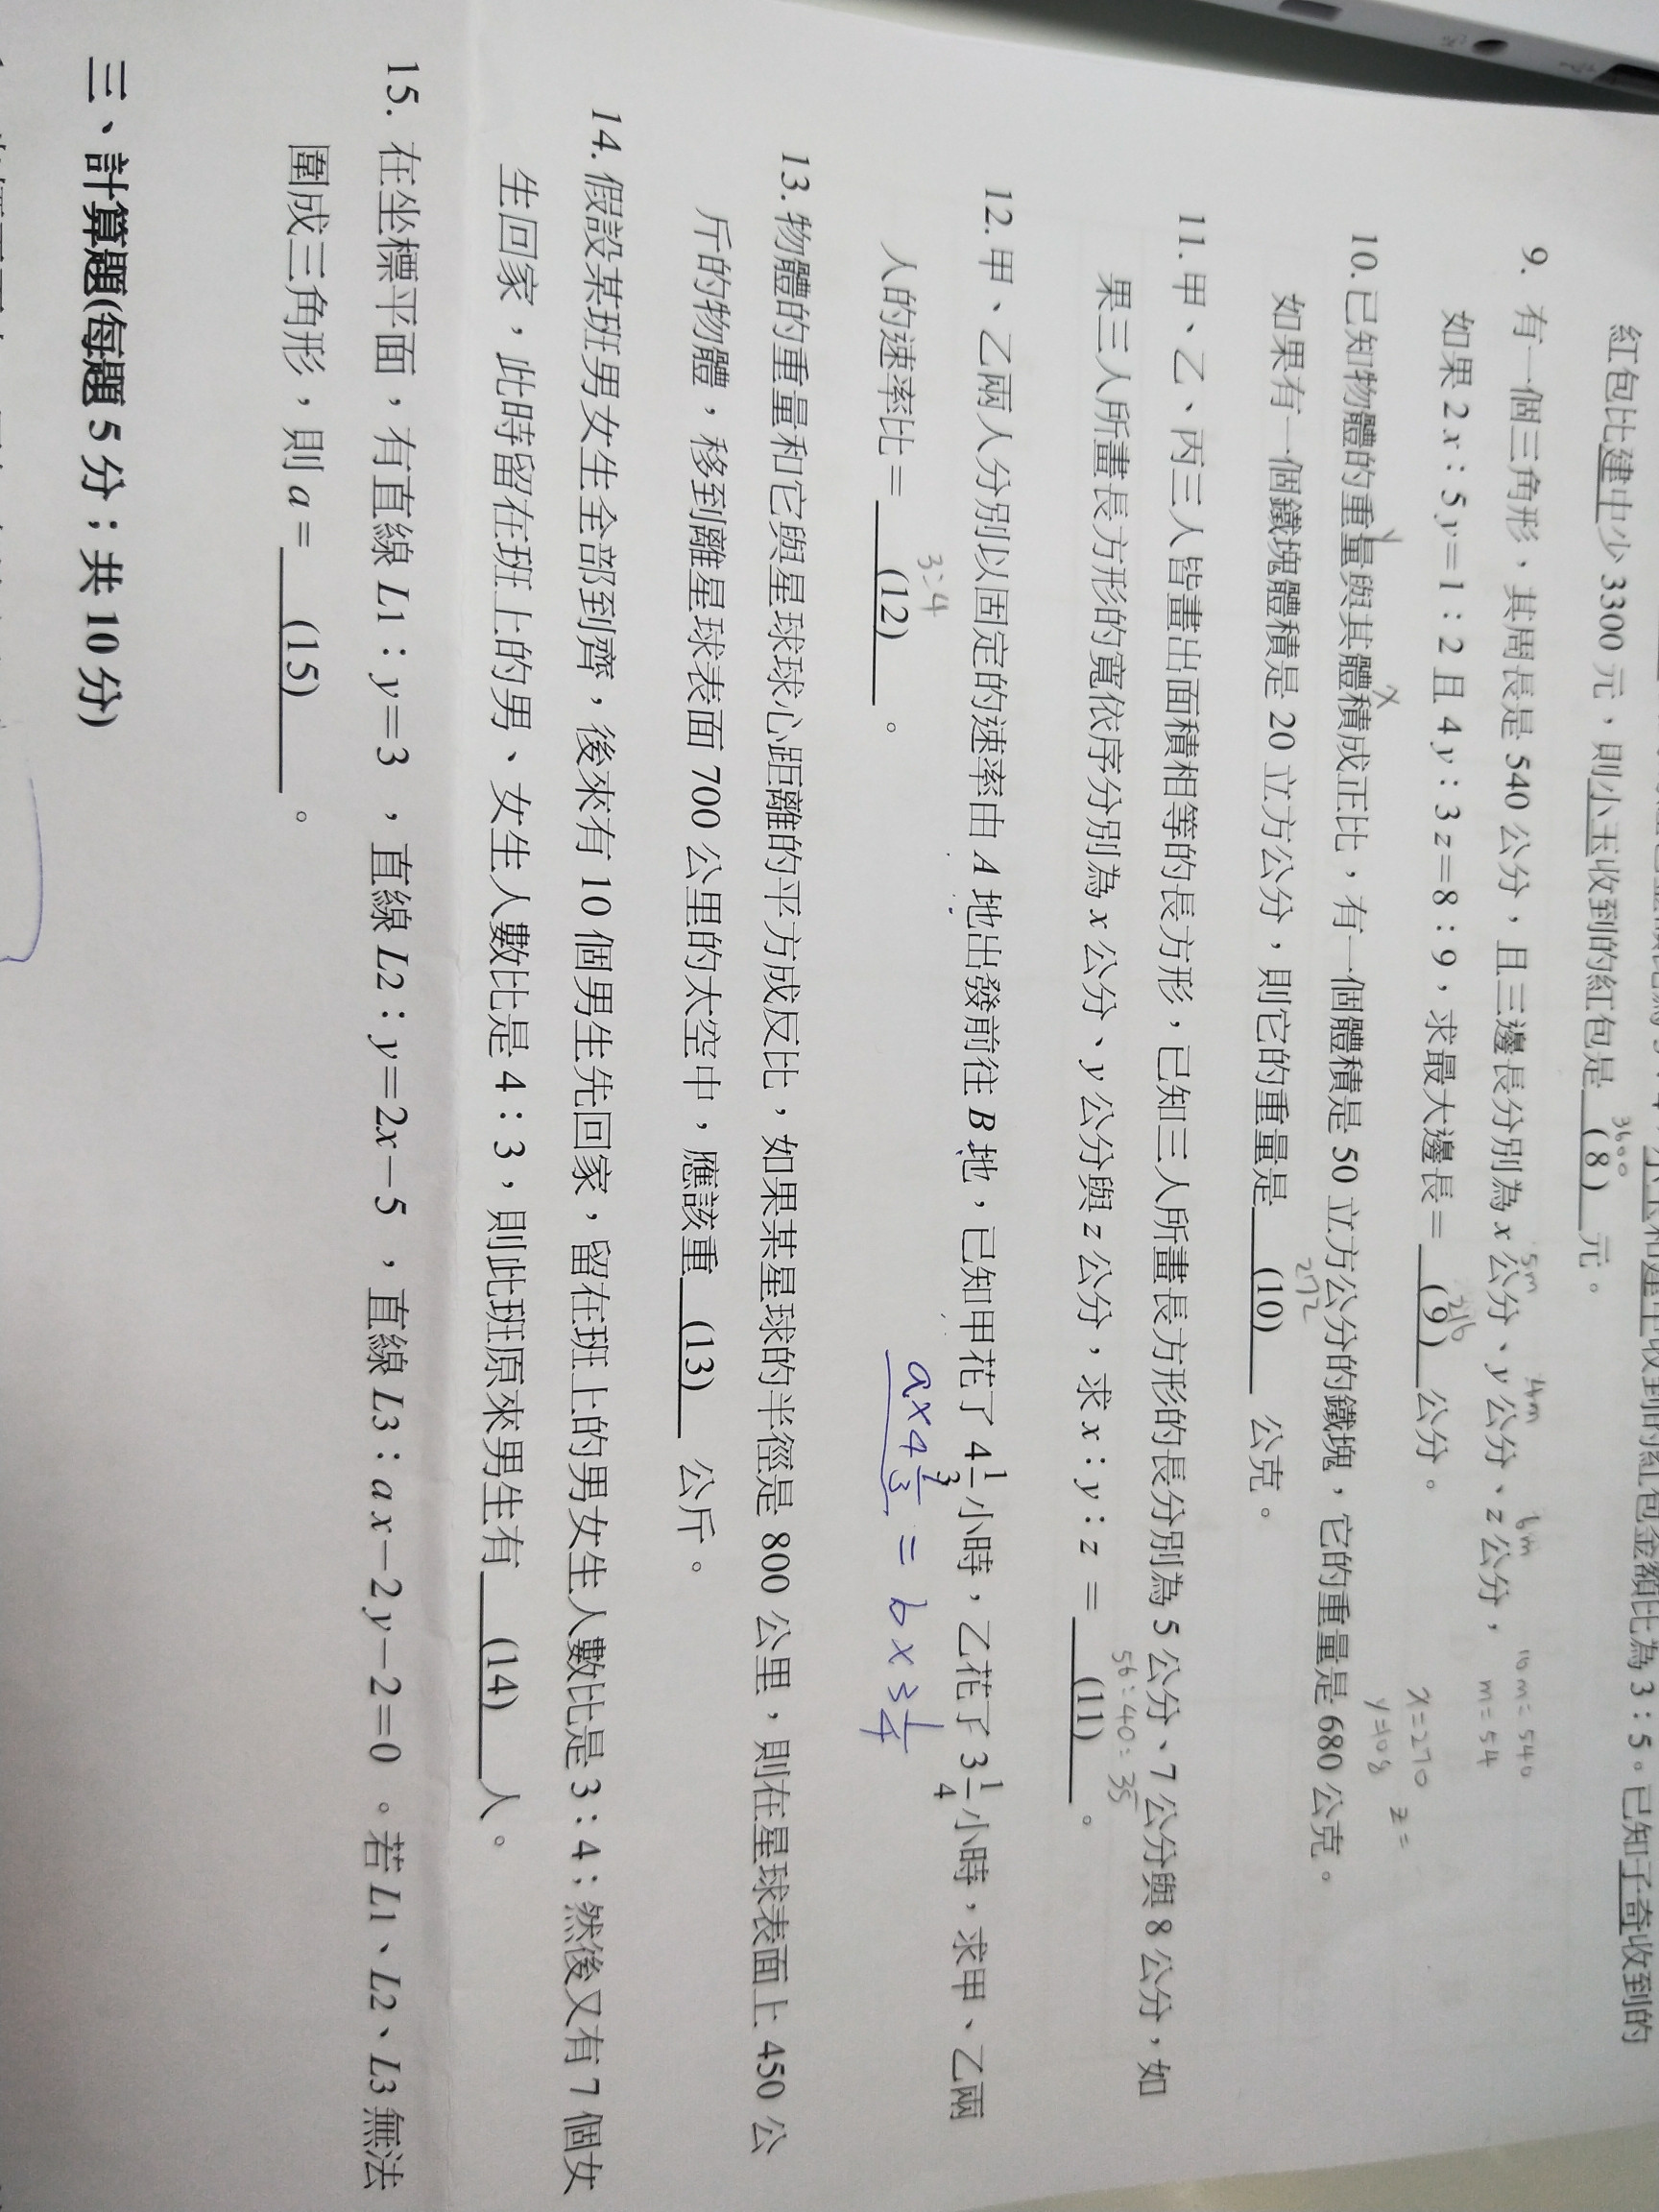 紅包比建中少 3300 元，則小玉收到的紅包是 (8) 元。
3600
9. 有一個三角形，其周長是 540 公分，且三邊長分別為 x 公分、y 公分、z 公分，
5m 4m 6m
如果 2x：5y=1：2 且 4y：3z=8：9，求最大邊長= (9) 公分。
m=54
x=270
y=108
z=
10. 已知物體的重量與其體積成正比，有一個體積是 50 立方公分的鐵塊，它的重量是 680 公克。
y x
如果有一個鐵塊體積是 20 立方公分，則它的重量是 (10) 公克。
272
11. 甲、乙、丙三人皆畫出面積相等的長方形，已知三人所畫長方形的長分別為 5 公分、7 公分與 8 公分，如
果三人所畫長方形的寬依序分別為 x 公分、y 公分與 z 公分，求 x：y：z = (11) 。
56:40:35
12. 甲、乙兩人分別以固定的速率由 A 地出發前往 B 地，已知甲花了 4 1/3 小時，乙花了 3 1/4 小時，求甲、乙兩
3:4
人的速率比= (12) 。
a×4 1/3 = b×3 1/4
13. 物體的重量和它與星球球心距離的平方成反比，如果某星球的半徑是 800 公里，則在星球表面上 450 公
斤的物體，移到離星球表面 700 公里的太空中，應該重 (13) 公斤。
14. 假設某班男女生全部到齊，後來有 10 個男生先回家，留在班上的男女生人數比是 3：4；然後又有 7 個女
生回家，此時留在班上的男、女生人數比是 4：3，則此班原來男生有 (14) 人。
15. 在坐標平面，有直線 L1：y=3 ，直線 L2：y=2x−5 ，直線 L3：ax−2y−2=0 。若 L1、L2、L3 無法
圍成三角形，則 a= (15) 。
三、計算題(每題 5 分；共 10 分)